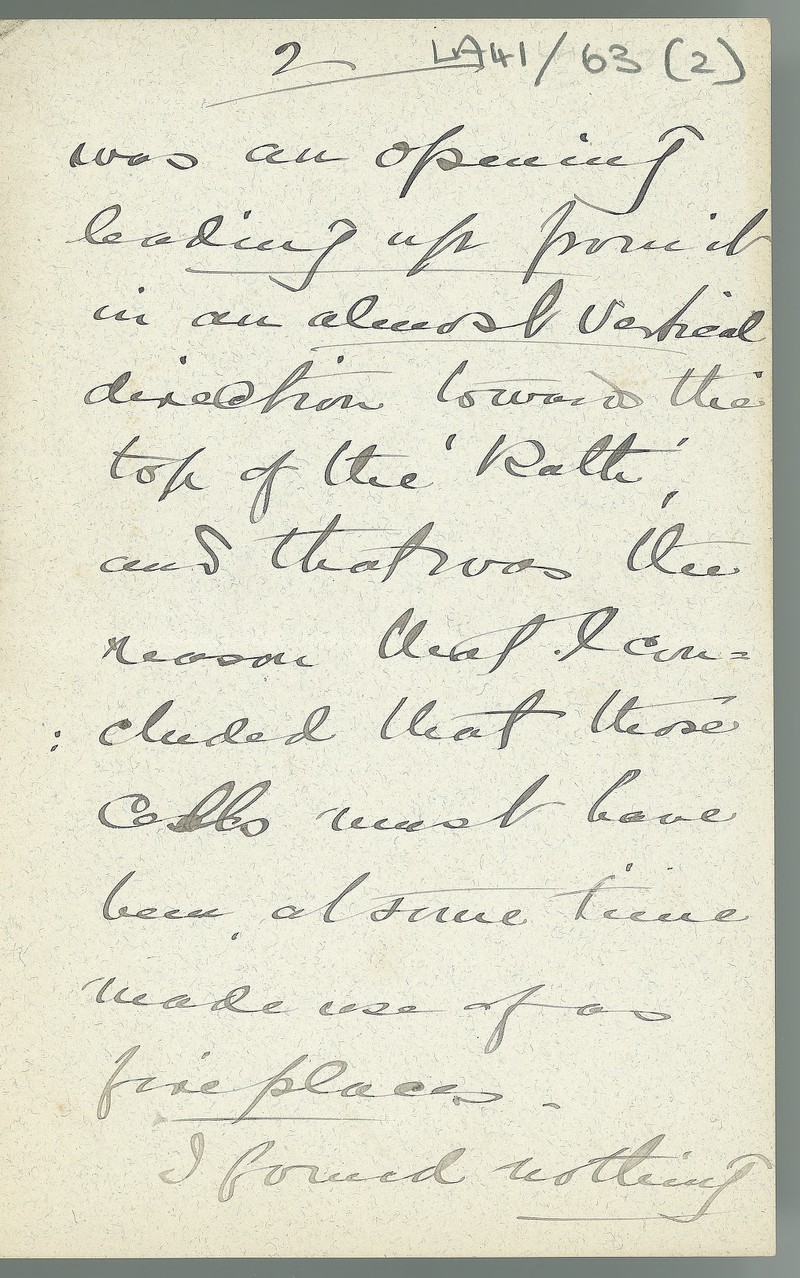 2 LA41/63 (2)
was an opening
leading up from it
in an almost vertical
direction towards the
top of the 'Rath',
and that was the
reason that I con=
: cluded that those
cells must have
been, at some time
made use of as
fire places.
I found nothing